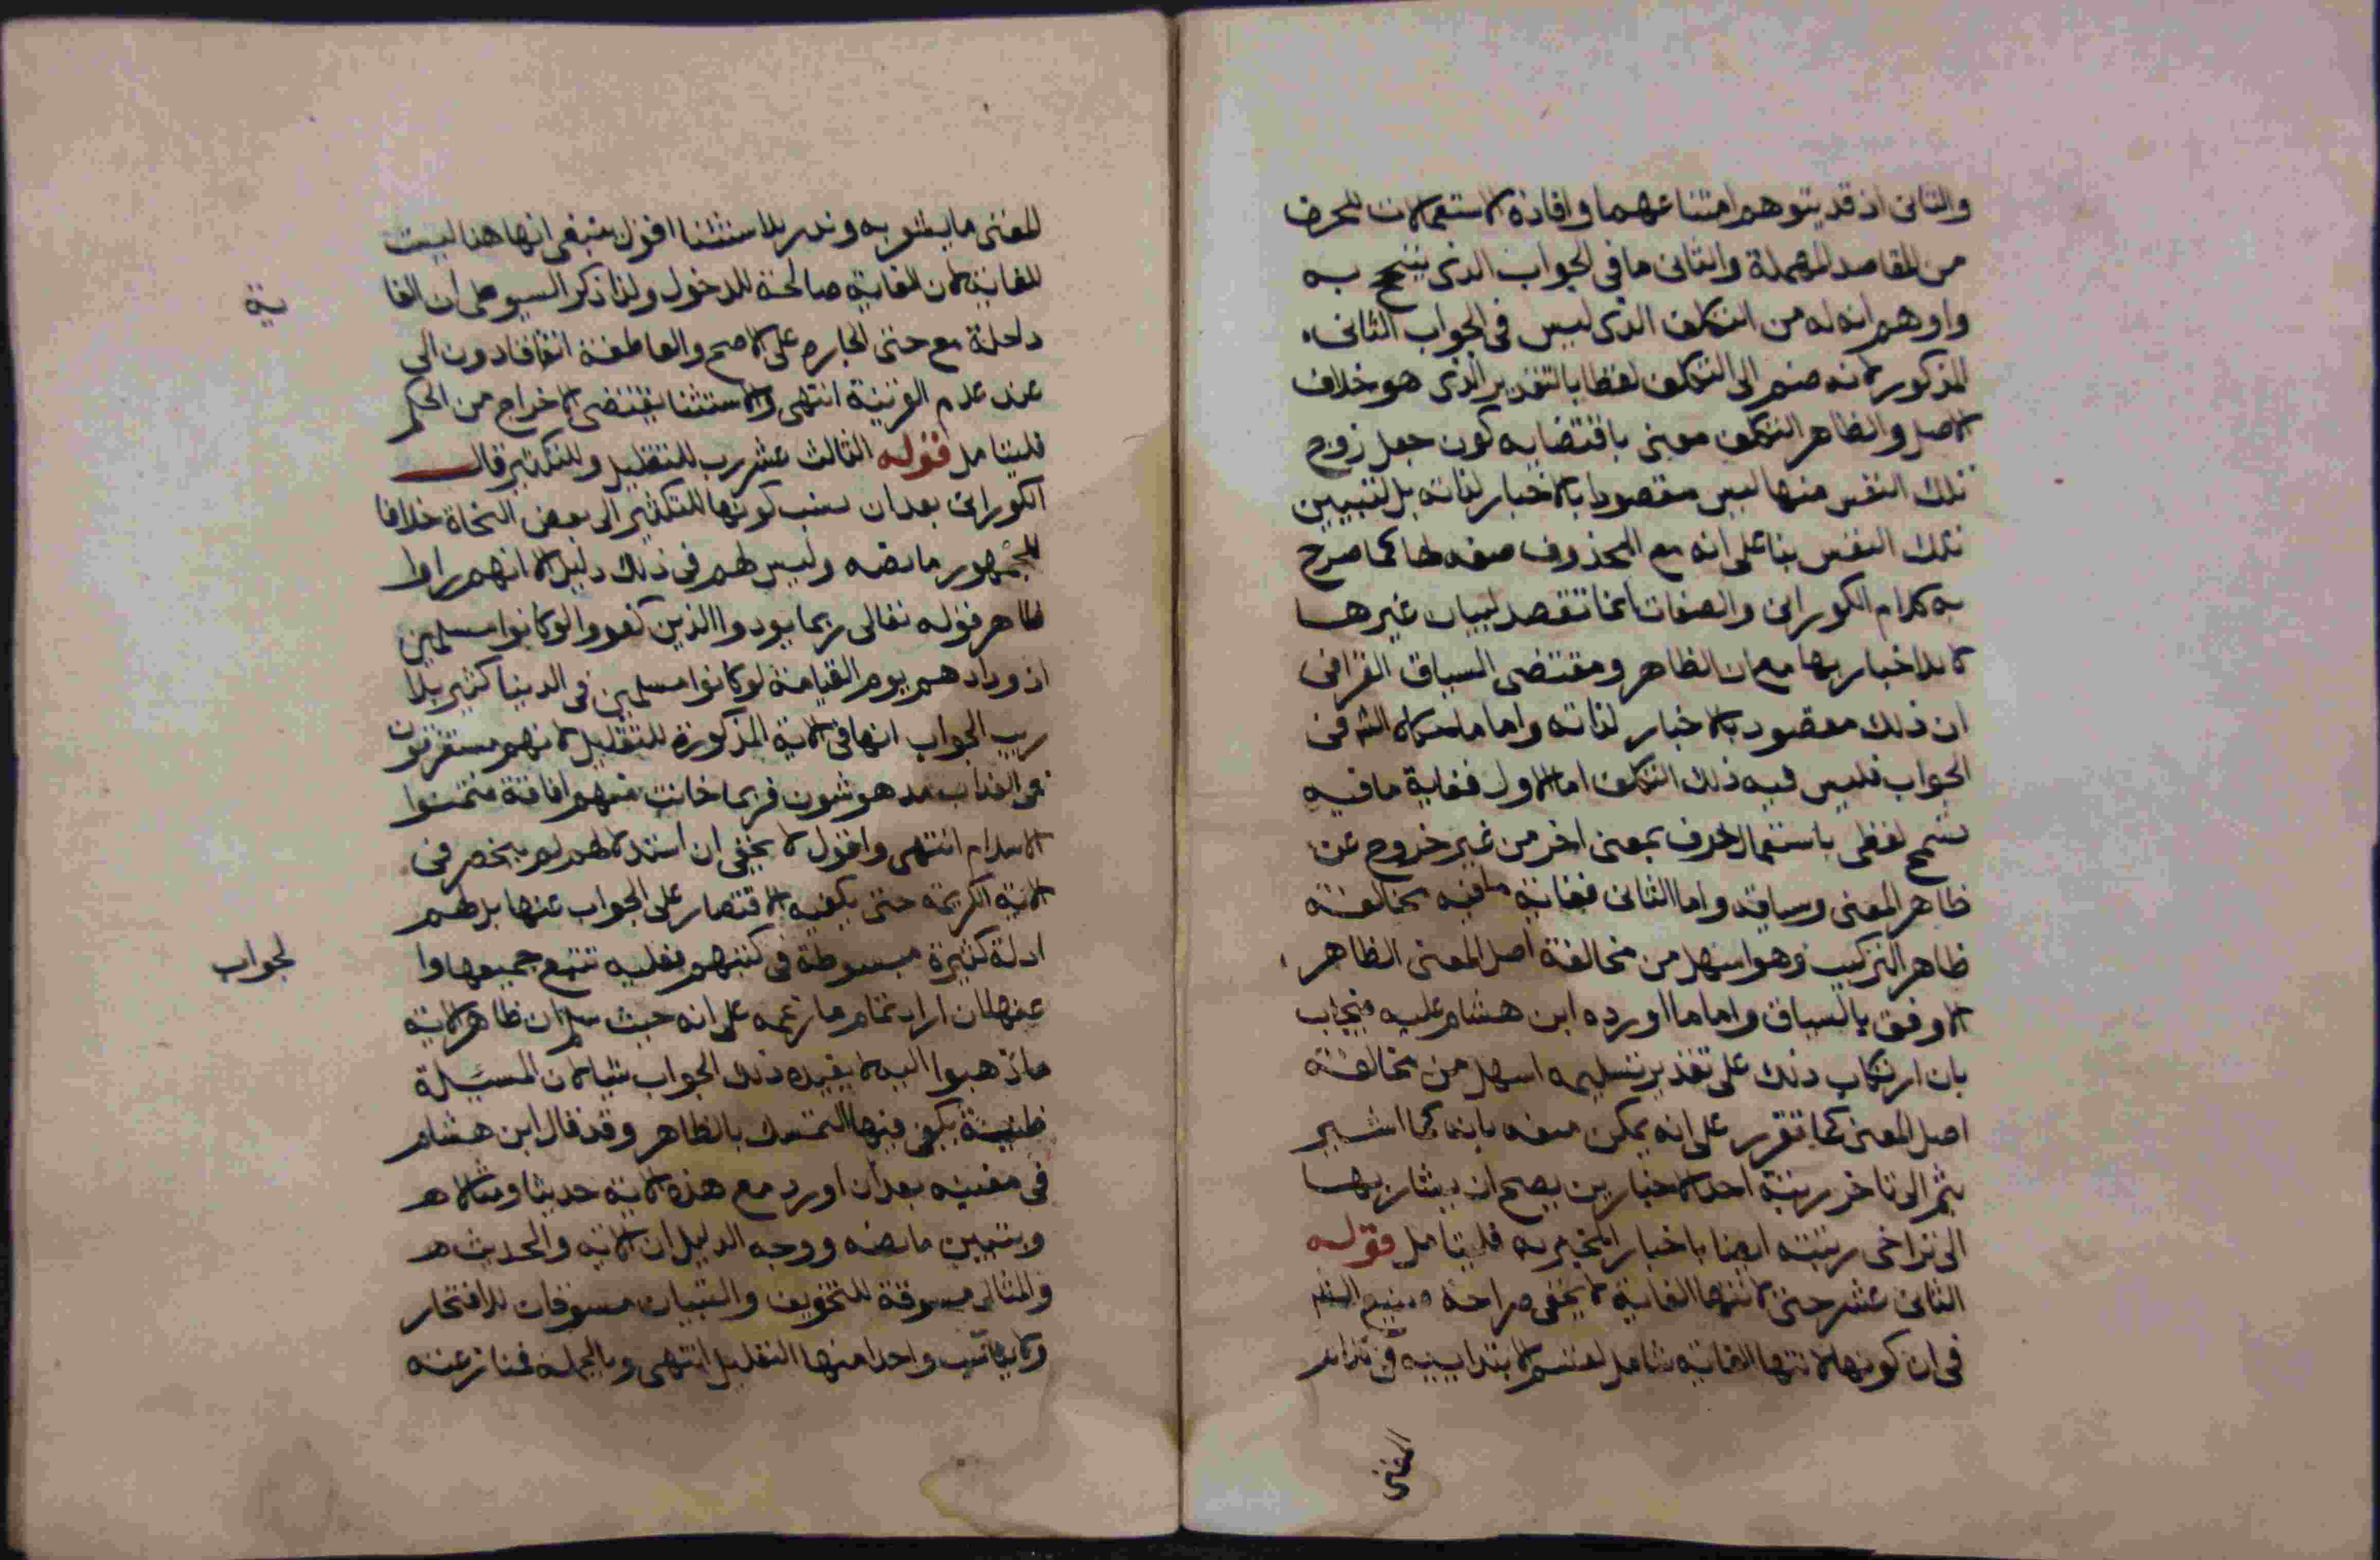 والثانى اذ قد يتوهم امتناعهما وافادة الاستعمالات للحرف
من المقاصد المهملة والثانى ما فى الجواب الذى به
واوهم انه له من التكلف الذى ليس فى الجواب الثانى
المذكور لانه ضم الى التكلف لفظا بالتقدير الذى هو خلاف
الاصل والظاهر التكلف معنى باقتضايه كون جعل زوج
تلك النفس منها ليس مقصودا بالاخبار لذاته بل لتبيين
تلك النفس بنا على انه مع المحذوف صفه لها كما صرح
به كلام الكورانى والصفات انما تقصد لبيان غيرها
لا للاخبار بها مع ان الظاهر ومقتضى السياق القرانى
ان ذلك مقصود بالاخبار لذاته واما ما فى
الجواب فليس فيه ذلك التكلف اما الاول فغاية ما فيه
تسمح لفظى باستعمال الحرف بمعنى اخر من غير خروج عن
ظاهر المعنى وسياقه واما الثانى فغاية ما فيه مخالفة
ظاهر التركيب وهو اسهل من مخالفة اصل المعنى الظاهر
الاوفق بالسياق واما ما اورده ابن هشام عليه فيجاب
بان ارتكاب ذلك على تقدير تسليمه اسهل من مخالفة
اصل المعنى كما تقرر على انه يمكن منعه بانه كما اشير
بثم الى تاخر رتبة احد الاخبارين يصح ان يشار بها
الى تراخى رتبته ايضا باخبار المخبر به فليتامل قوله
الثانى عشر حتى لانتها الغاية لا يخفى صراحة
فى ان كونها لانتها الغاية شامل لقسم الابتداييه
المعنى
للمعنى ما يشوبه وندر للاستثنا اقول ينبغى انها هنا ليست
للغاية لان الغاية صالحة للدخول ولذا ذكر السيوطى ان الغا
ية
داخلة مع حتى الجاره على الاصح والعاطفة اتفاقا دون الى
عند عدم القرينة انتهى والاستثنا يقتضى الاخراج من الحكم
فليتامل قوله الثالث عشر رب للتقليل وللتكثير قال
الكورانى بعد ان نسب كونها للتكثير الى بعض النحاة خلافا
للجمهور ما نصه وليس لهم فى ذلك دليل الا انهم راوا
ظاهر قوله تعالى ربما يود الذين كفروا لو كانوا مسلمين
اذ ودادهم يوم القيامة لو كانوا مسلمين فى الدنيا كثير بلا
ريب الجواب انها فى الاية المذكورة للتقليل لانهم مستغرقون
فى العذاب مدهوشون فربما حانت منهم افاقة فتمنوا
الاسلام انتهى واقول لا يخفى ان استدلالهم لم ينحصر فى
الاية الكريمة حتى يكفيه الاقتصار على الجواب عنها بل لهم
ادلة كثيرة مبسوطة فى كتبهم فعليه تتبع جميعها وا
لجواب
عنها ان اراد تمام ما زعمه على انه حيث سلم ان ظاهر الاية
ما ذهبوا اليه لا يفيده ذلك الجواب شيا لان المسيلة
ظنية يكفى فيها التمسك بالظاهر وقد قال ابن هشام
فى مغنيه بعد ان اورد مع هذه الاية حديثا ومثالا
وبيتين ما نصه ووجه الدليل ان الاية والحديث
والمثال مسوقة للتخويف والبيتان مسوقان للافتخار
ولا يناسب واحدا منها التقليل انتهى وبالجملة فمنازعته